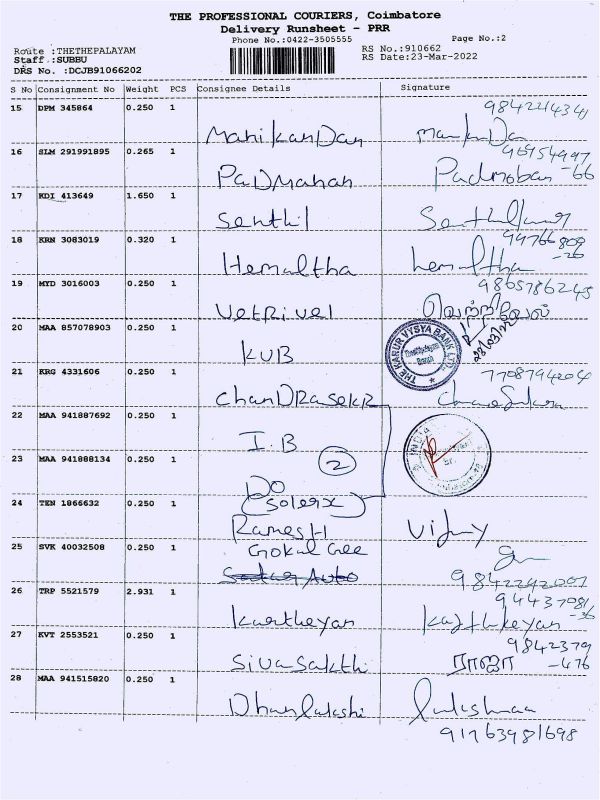 THE PROFESSIONAL COURIERS, Coimbatore
Delivery Runsheet - PRR
Phone No.:0422-3505555
Page No.:2
Route :THETHEPALAYAM
Staff :SUBBU
DRS No. :DCJB91066202
RS No.:910662
RS Date:23-Mar-2022
S No Consignment No Weight PCS Consignee Details Signature
15 DPM 345864 0.250 1
ManikanDan
16 SLM 291991895 0.265 1
PaDMahan Padmoban -66
17 KDI 413649 1.650 1
Senthil
18 KRN 3083019 0.320 1 99766809
-26
Hemaltha hemaltha
19 MYD 3016003 0.250 1 9865786245
Vetrivel வெற்றிவேல்
20 MAA 857078903 0.250 1
KVB
THE KARUR VYSYA BANK LTD.
21 KRG 4331606 0.250 1 7708794204
chanDRasekR
22 MAA 941887692 0.250 1
I.B
2
23 MAA 941888134 0.250 1
Do
24 TEN 1866632 0.250 1
Ramesh Vijay
25 SVK 40032508 0.250 1
Gokul Gee
26 TRP 5521579 2.931 1 94437081
-36
Kartheyan Kajthkeyan
27 KVT 2553521 0.250 1 9842379
-476
Sivasakthi ராஜா
28 MAA 941515820 0.250 1
91763981698